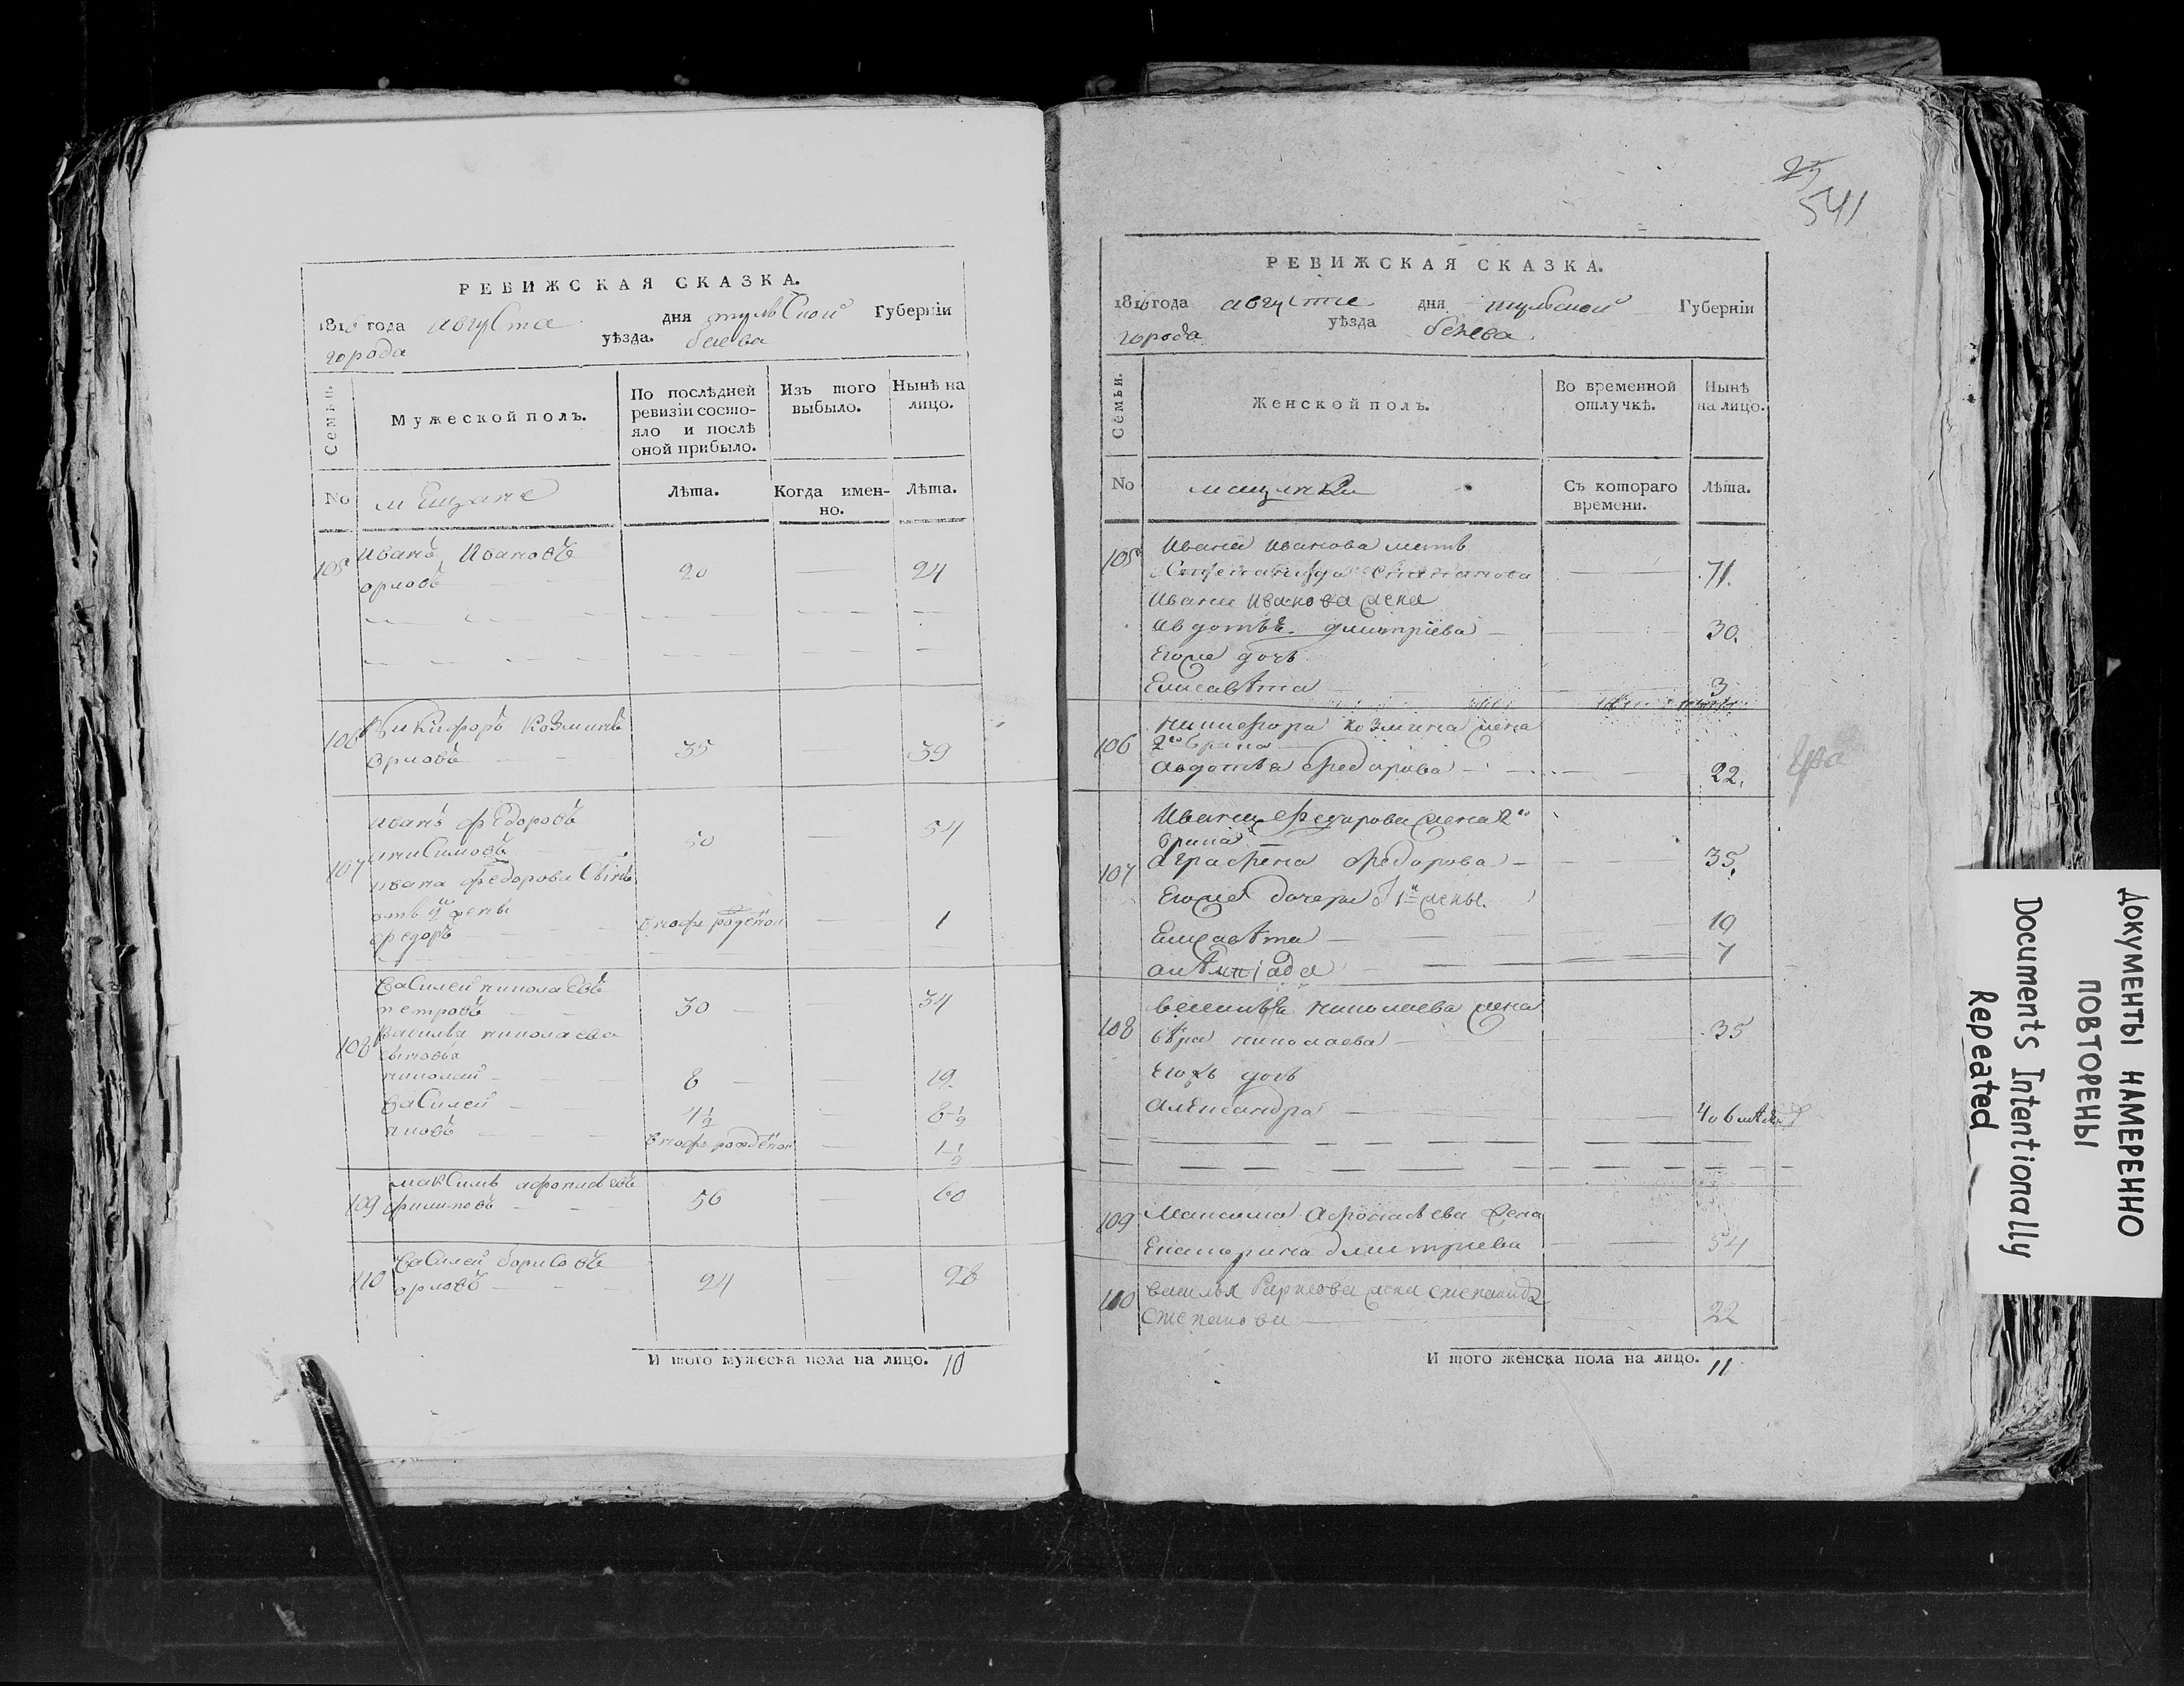 РЕВИЖСКАЯ СКАЗКА.
1816 года августа дня тульской Губерніи
города уѣзда. белева
Семьи.
Мужеской полъ.
По послѣдней ревизіи состо-
яло и послѣ
оной прибыло.
Изъ того
выбыло.
Нынѣ на
лицо.
No
мещане
Лѣта.
Когда имен-
но.
Лѣта.
105 Иванъ Ивановъ
орловъ 20 24
106 Никифоръ Козминъ
Орловъ 35 39
107 Иванъ федоровъ
50 54
ивана федорова сынъ
отъ 2й жены
федоръ 1
108 Василей николаевъ
петровъ 30 34
Василья николаева
сыновья
николай 8 19
Василей 4½ 8½
яковъ 1½
109 Максимъ афонасьевъ
филиповъ 56 60
110 Василей борисовъ
орловъ 24 28
И того мужеска пола на лицо. 10
25
541
РЕВИЖСКАЯ СКАЗКА.
1816 года августа дня тульской Губерніи
города уѣзда белева
Семьи.
Женской полъ.
Во временной
отлучкѣ.
Нынѣ
на лицо.
No
мещанки
Съ котораго
времени.
Лѣта.
105 Ивана Иванова мать
71.
Ивана Иванова жена
Авдотья дмитріева 30.
Егоже дочь
Елисавѣта 3
106 никифора козмина жена
2го брака
Авдотья федорова 22.
107 Ивана федорова жена 2го
брака
аграфена федорова 35.
Егоже дочери от 1й жены.
Елисавѣта 19
7
108 василья николаева жена
вѣра николаева 35
Егожъ дочь
Александра
109 Максима Афонасьева жена
Екатерина дмитриева 54
110 василья Борисова жена степанида
степанова 22
И того женска пола на лицо. 11
ДОКУМЕНТЫ НАМЕРЕННО
ПОВТОРЕНЫ
Documents Intentionally
Repeated